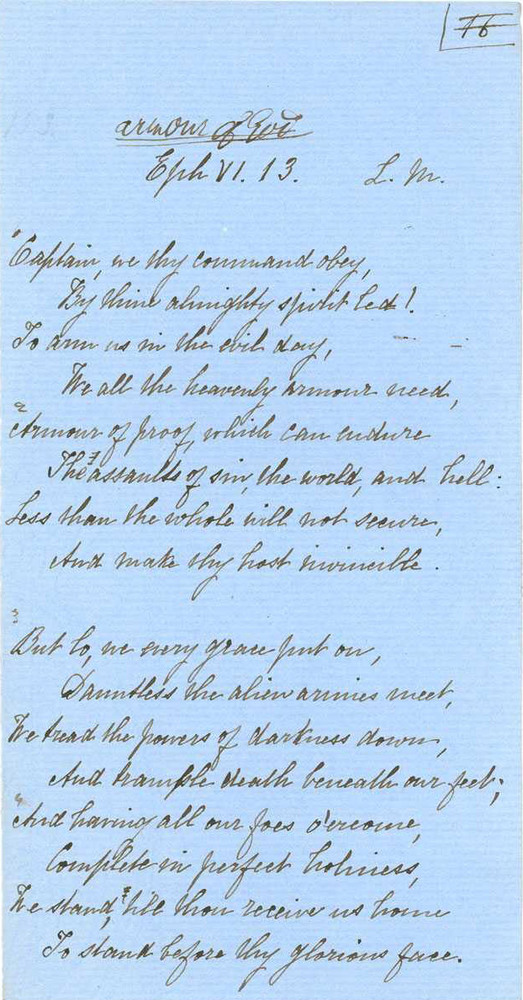 16
armour of God
Eph VI. 13. L. M.
Captain, we thy command obey,
By thine almighty spirit led!
To arm us in the evil day,
We all the heavenly armour need,
2
Armour of proof, which can endure
The assaults of sin, the world, and hell:
Less than the whole will not secure,
And make thy host invincible.
3
But lo, we every grace put on,
Dauntless the alien armies meet,
We tread the powers of darkness down,
And trample death beneath our feet;
And having all our foes o'ercome,
Complete in perfect holiness,
We stand, till thou receive us home
To stand before thy glorious face.